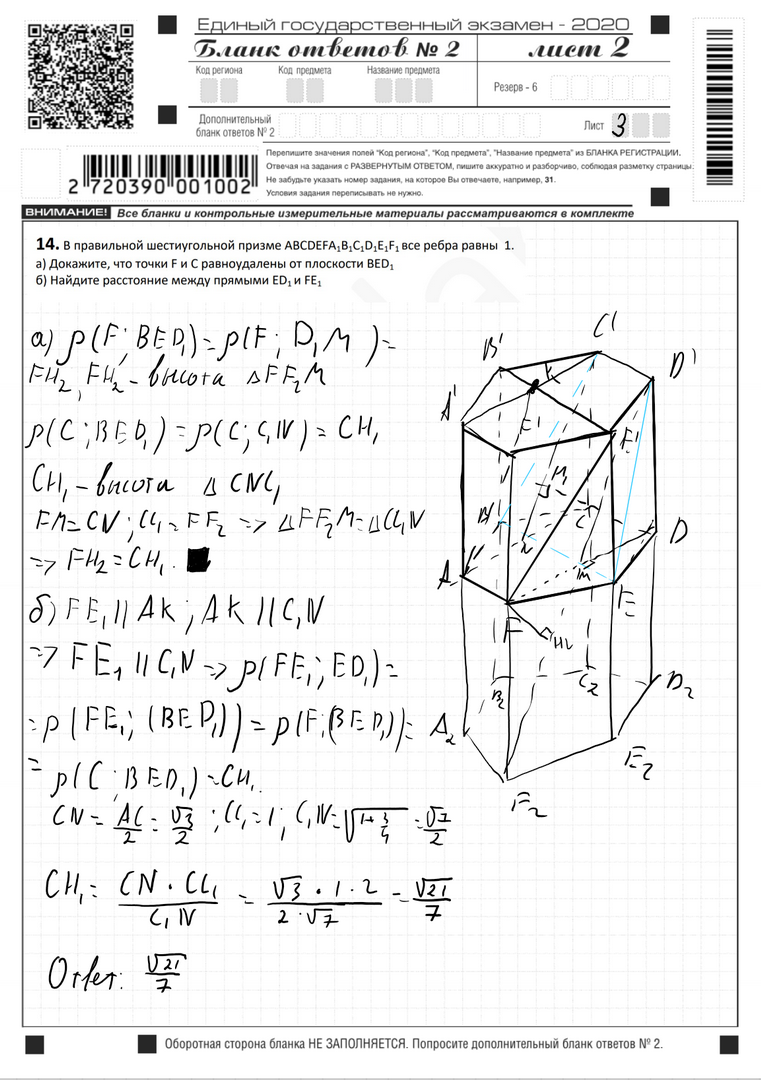 Единый государственный экзамен - 2020
Бланк ответов № 2 лист 2
Код региона Код предмета Название предмета
Резерв - 6
Дополнительный бланк ответов № 2
Лист 3
2 720390 001002
Перепишите значения полей "Код региона", "Код предмета", "Название предмета" из БЛАНКА РЕГИСТРАЦИИ.
Отвечая на задания с РАЗВЕРНУТЫМ ОТВЕТОМ, пишите аккуратно и разборчиво, соблюдая разметку страницы.
Не забудьте указать номер задания, на которое Вы отвечаете, например, 31.
Условия задания переписывать не нужно.
ВНИМАНИЕ! Все бланки и контрольные измерительные материалы рассматриваются в комплекте
14. В правильной шестиугольной призме ABCDEFA₁B₁C₁D₁E₁F₁ все ребра равны 1.
а) Докажите, что точки F и C равноудалены от плоскости BED₁
б) Найдите расстояние между прямыми ED₁ и FE₁
а) ρ(F; BED₁) = ρ(F; D₁M) =
FH₂, FH₂ - высота ΔFF₂M
ρ(C; BED₁) = ρ(C; C₁N) = CH₁
CH₁ - высота Δ CNC₁
FM = CN; CC₁ = FF₂ => ΔFF₂M = ΔCC₁N
=> FH₂ = CH₁. ■
б) FE₁ || AK; AK || C₁N
=> FE₁ || C₁N => ρ(FE₁; ED₁) =
= ρ(FE₁; (BED₁)) = ρ(F; (BED₁)) =
= ρ(C; BED₁) = CH₁.
CN = AC/2 = √3/2; CC₁ = 1; C₁N = √(1+3/4) = √7/2
CH₁ = CN · CC₁ / C₁N = √3 · 1 · 2 / 2 · √7 = √21/7
Ответ: √21/7
B' C' D' A' K F' E'
M₁ B C N M D A F E H₂
B₂ C₂ D₂ A₂ E₂ F₂
Оборотная сторона бланка НЕ ЗАПОЛНЯЕТСЯ. Попросите дополнительный бланк ответов № 2.